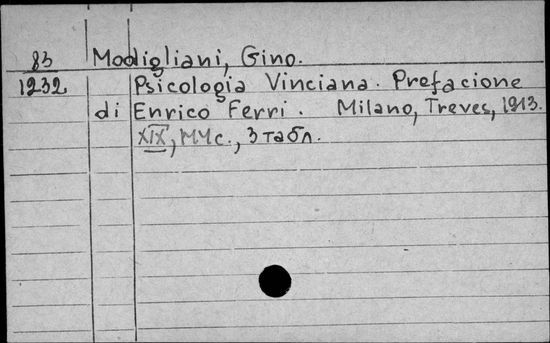 83 Modigliani, Gino.
1232 Psicologia Vinciana. Prefacione
di Enrico Ferri. Milano, Treves, 1913.
XIX, с., 3 табл.